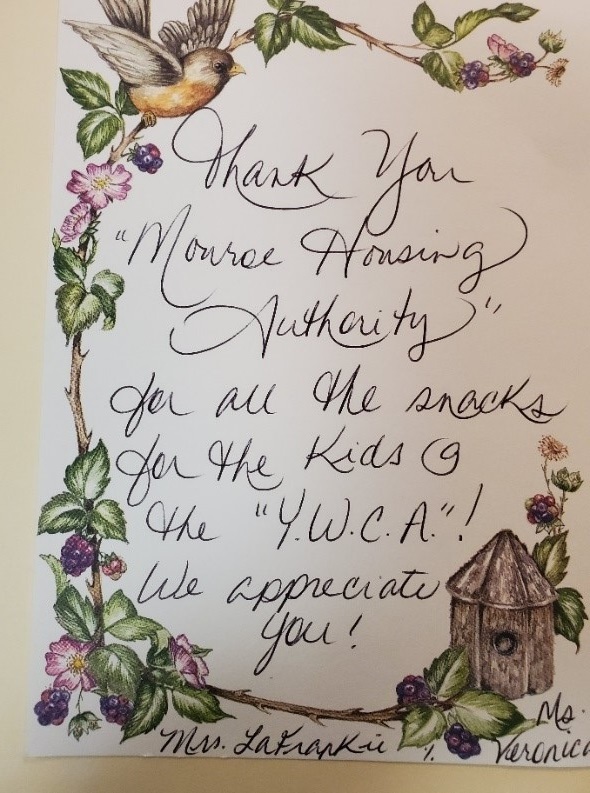 Thank You
"Monroe Housing
Authority"
for all the snacks
for the Kids @
the "Y.W.C.A."!
We appreciate
you!
Ms.
Mrs. LaFrankie % Veronica